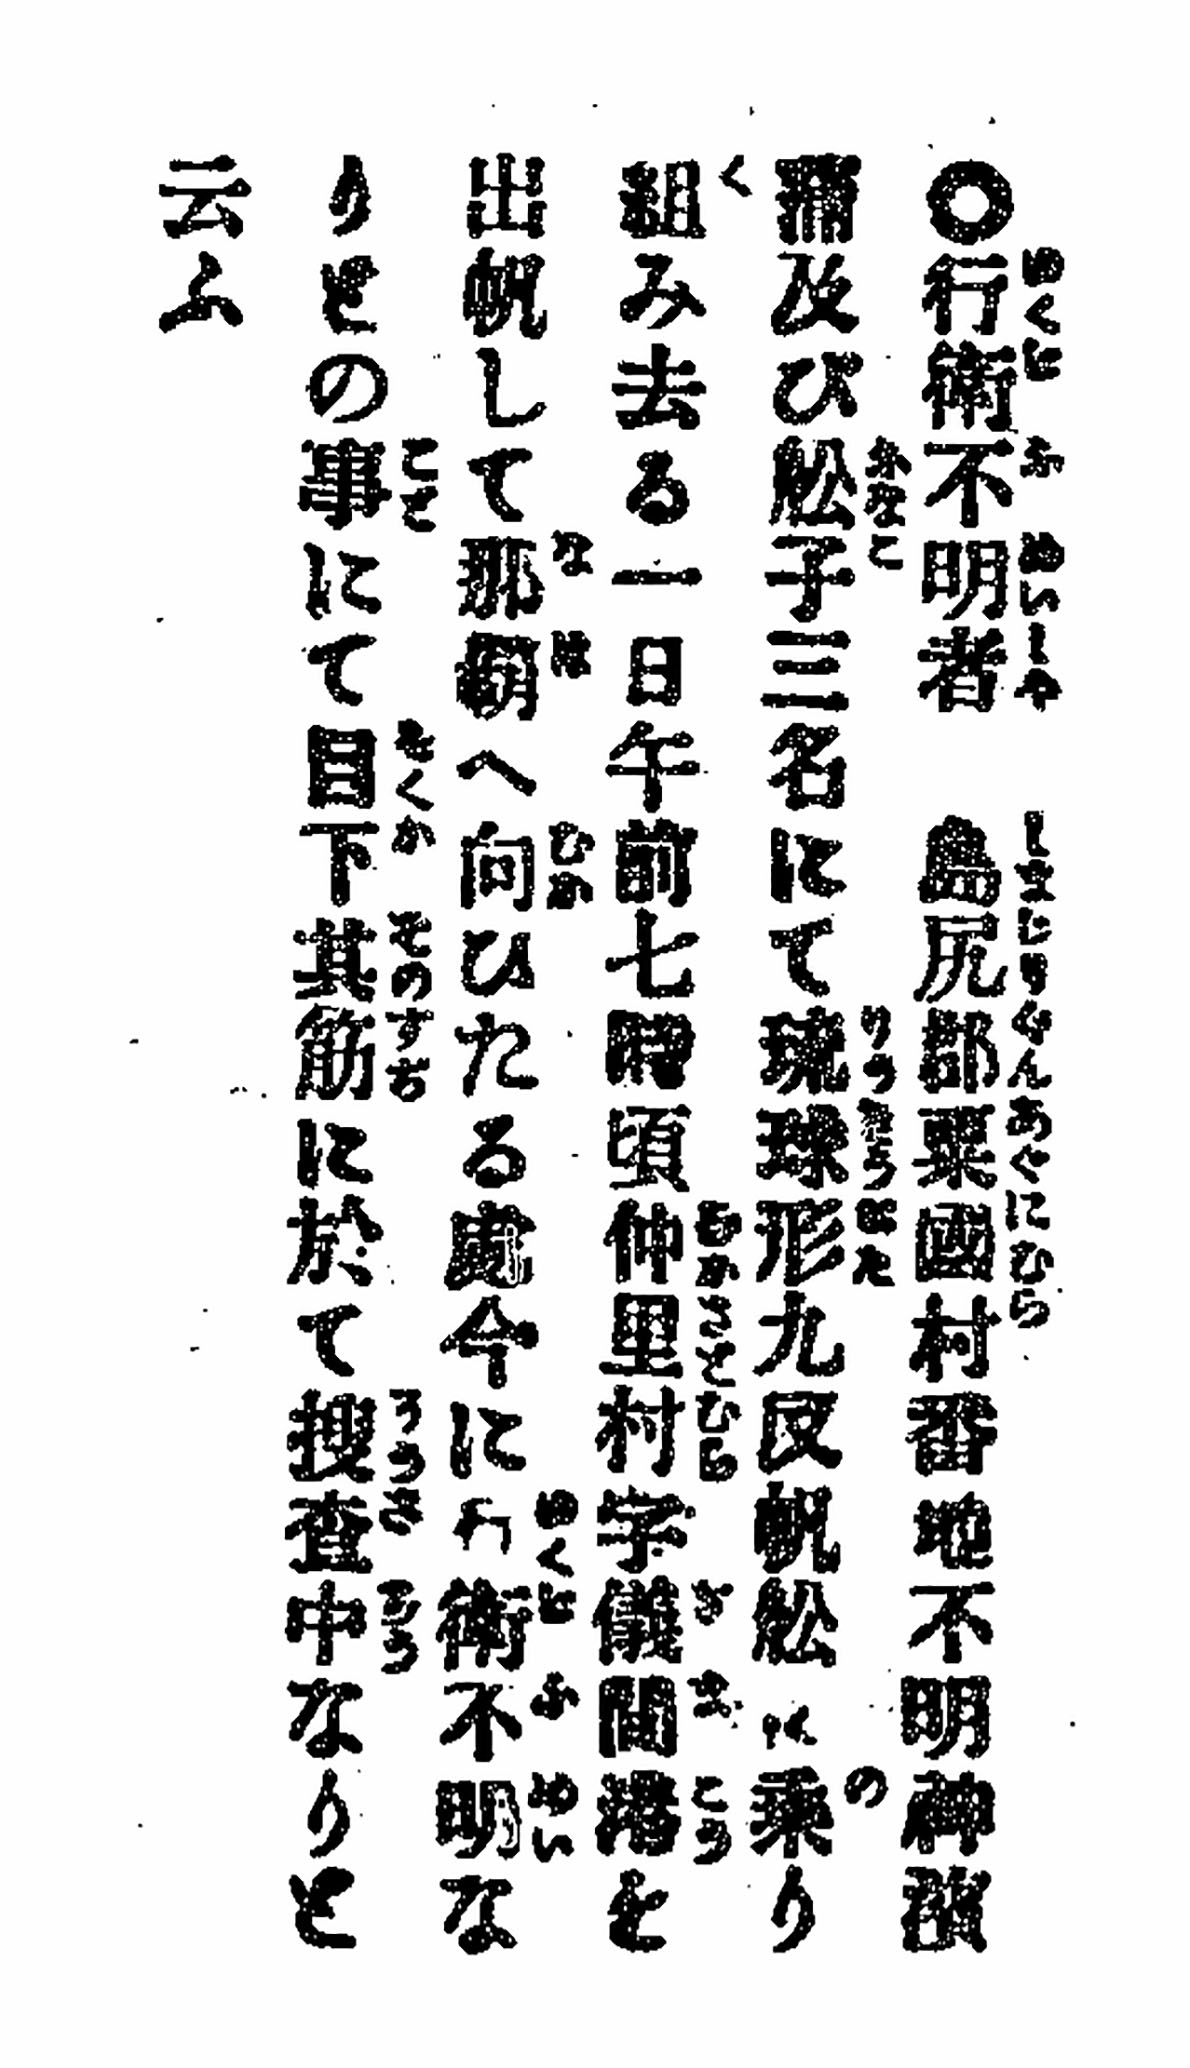 ○行衛不明者　島尻郡粟國村番地不明神濱
蒲及び舩子三名にて琉球形九反帆舩に乗り
組み去る一日午前七時頃仲里村字儀間港を
出帆して那覇へ向ひたる處今に行衛不明な
りとの事にて目下其筋に於て捜査中なりと
云ふ